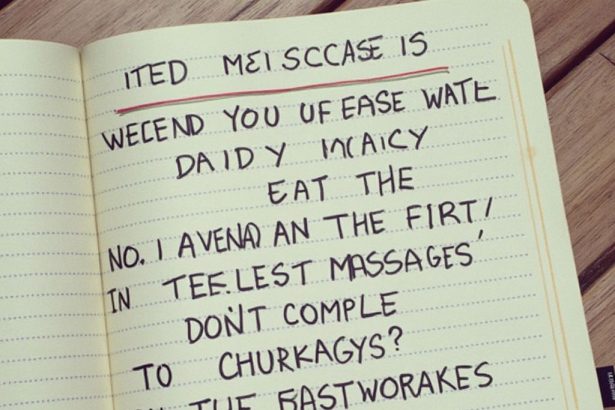 ITED MEI SCCASE IS
WECEND YOU UF EASE WATE
DAIDY
EAT THE
NO. I AVENA AN THE FIRT/
IN TEE.LEST MASSAGES'
DON'T COMPLE
TO CHURKAGYS?
THE FASTWORAKES